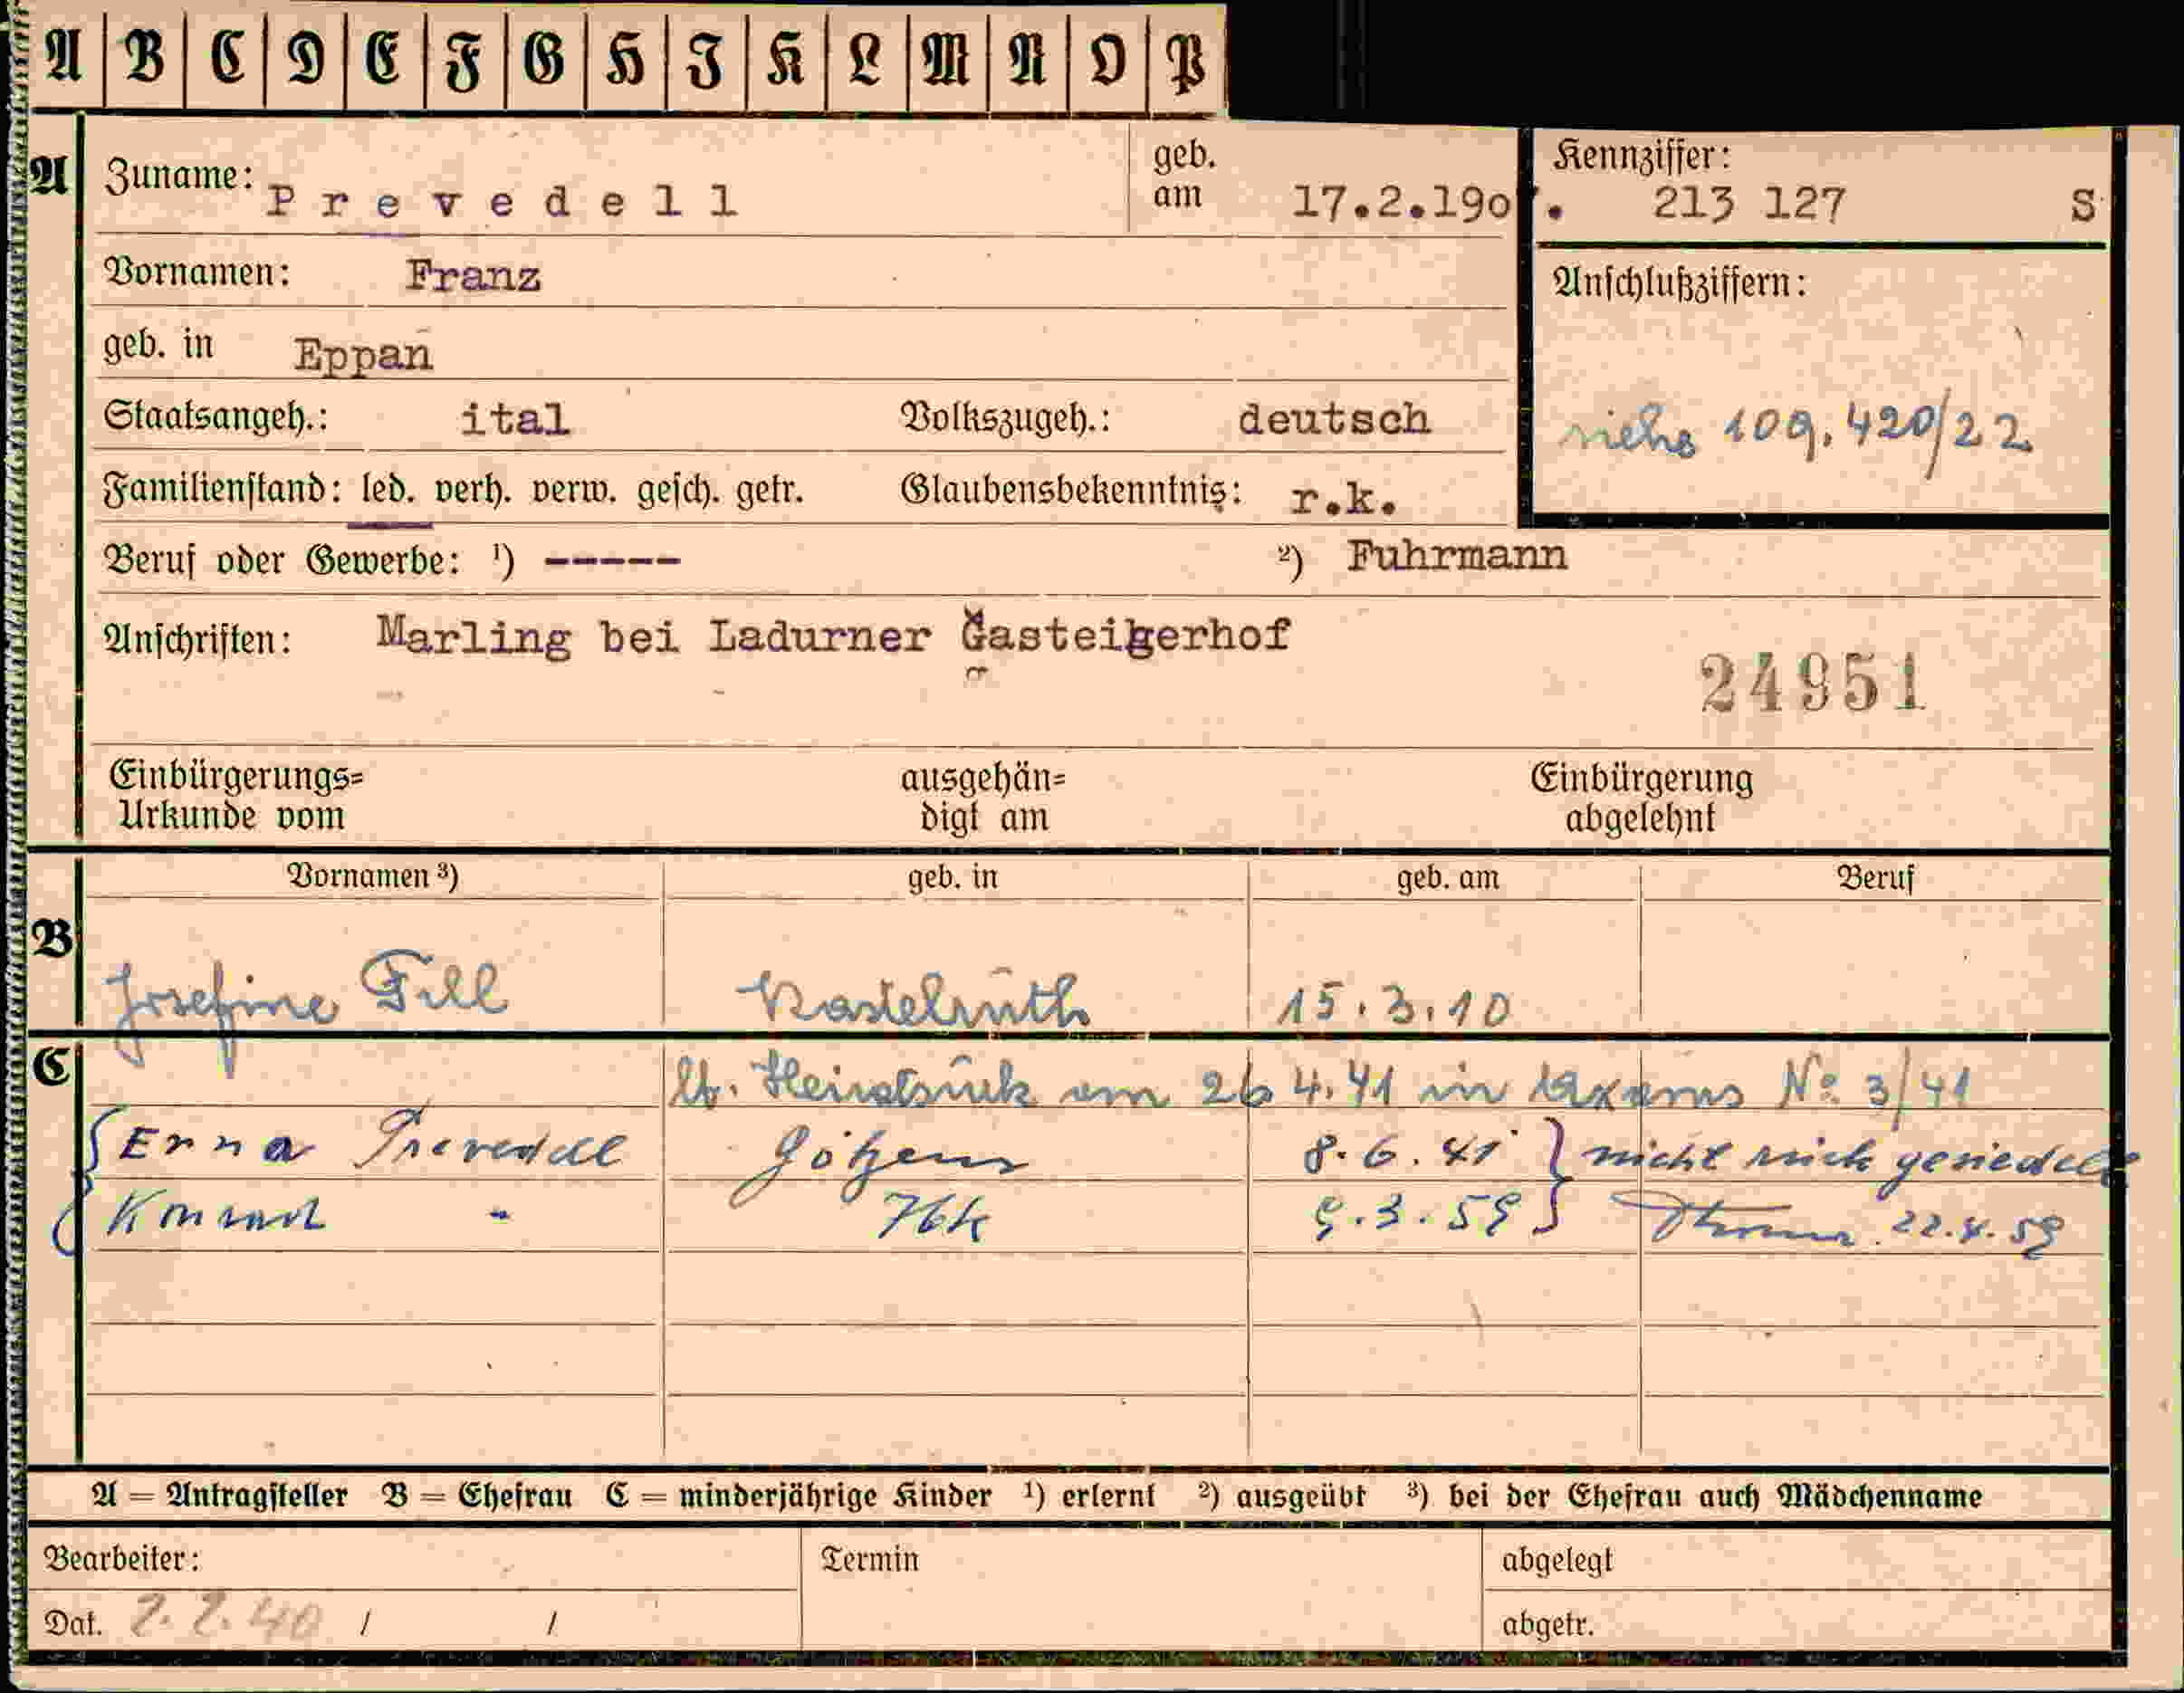 A B C D E F G H I K L M N O P
A Zuname: Prevedell geb. am 17.2.190 . Kennziffer: 213 127 S
Vornamen: Franz Anschlußziffern:
geb. in Eppan
Staatsangeh.: ital Volkszugeh.: deutsch siehe 109.420/22
Familienstand: led. verh. verw. gesch. getr. Glaubensbekenntnis: r.k.
Beruf oder Gewerbe: ¹) ----- ²) Fuhrmann
Anschriften: Marling bei Ladurner Gasteigerhof
24951
Einbürgerungs= ausgehän= Einbürgerung
Urkunde vom digt am abgelehnt
Vornamen ³) geb. in geb. am Beruf
B Josefine Fill Kastelruth 15.3.10
C lt. Heiratsurk am 26 4.41 in Axams No 3/41
Erna Prevedell Götzens 8.6.41 nicht rück gesiedelt
Konrad " Ibk 9.3.59 22.4.59
A = Antragsteller B = Ehefrau C = minderjährige Kinder ¹) erlernt ²) ausgeübt ³) bei der Ehefrau auch Mädchenname
Bearbeiter: Termin abgelegt
Dat. 2.2.40 / / abgetr.